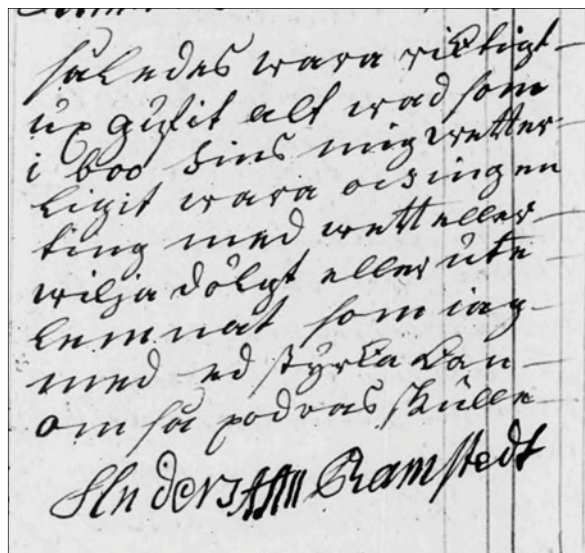 således wara richtigt
up gifit alt wad som
i boo fins mig wetter
ligit wara och ingen
ting med wett eller
wilja dölgt eller ute
lemnat som iag
med ed styrka kan
om så podras skulle
Ramstedt